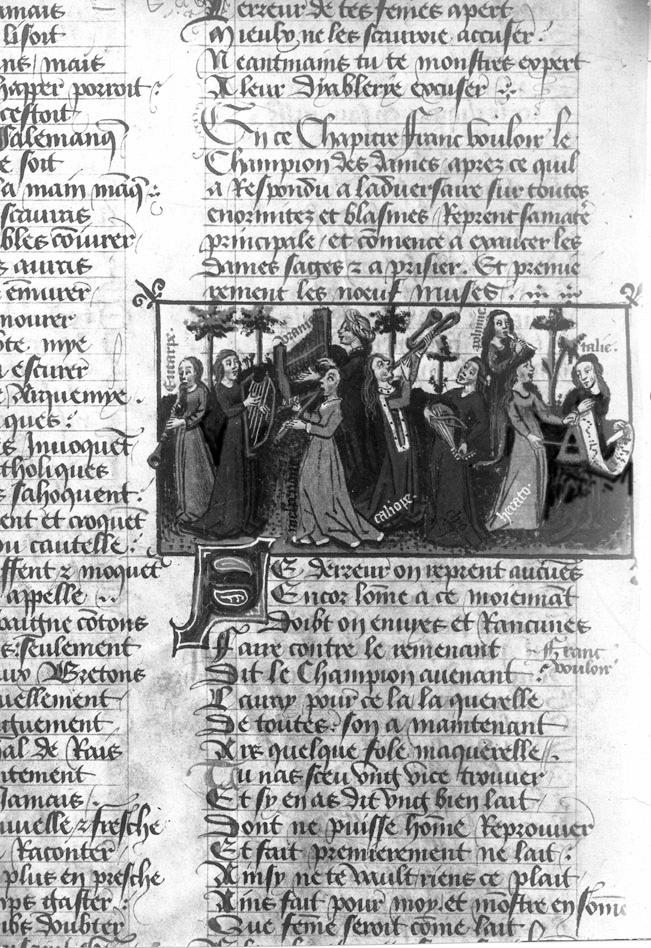 amais
lisoit
ns mais
haper porroit :
cestoit
Jalemanq
e soit
a main
scauras
bles couurer
s auras
enmurer
mourer
ote mye
a escurer
e darquemye .
ques :
s Inuoquet
tholiques
s sahoquent :
ent et croquet
ou cautelle :
ffent z moquet
appelle ..
paigne cotons
s : seulement
aux Bretons
uellement
guement
al de Rais
utement
Jamais .
uuelle z fresche
Raconter
plus en presche
mps gaster :
ibs doubter
Lerreur de tes femes apert
Mieulx ne les scauroie accuser :
Neantmains tu te monstres expert
A leur dyablerye excuser
En ce Chapitre franc vouloir le
Champion des dames aprez ce quil
a Respondu a laduersaire sur toutes
enormitez et blasmes Reprent sa mate
principale / et comence a exaucer les
dames sages z a prisier . Et premie
rement les noeuf muses .
Euterpe .
vrani
polimie
talie .
caliope .
herato .
Se derreur on reprent aucues
Encor lome a ce morennat
Doibt on enuyes et Rancunes
Faire contre le remenant
Franc vouloir
Dit le Champion auenant
Lauray pour ce la la querelle
De toutes : son a maintenant
Ars quelque fole maquerelle
Tu nas sceu vng vice trouuer
Et sy en as dit vng bien lait
Dont ne puisse home Reprouuer
Et fait premierement ne lait :
Ainsy ne te vault riens ce plait
Ains fait pour moy . et mostre en some
Que feme seroit come lait